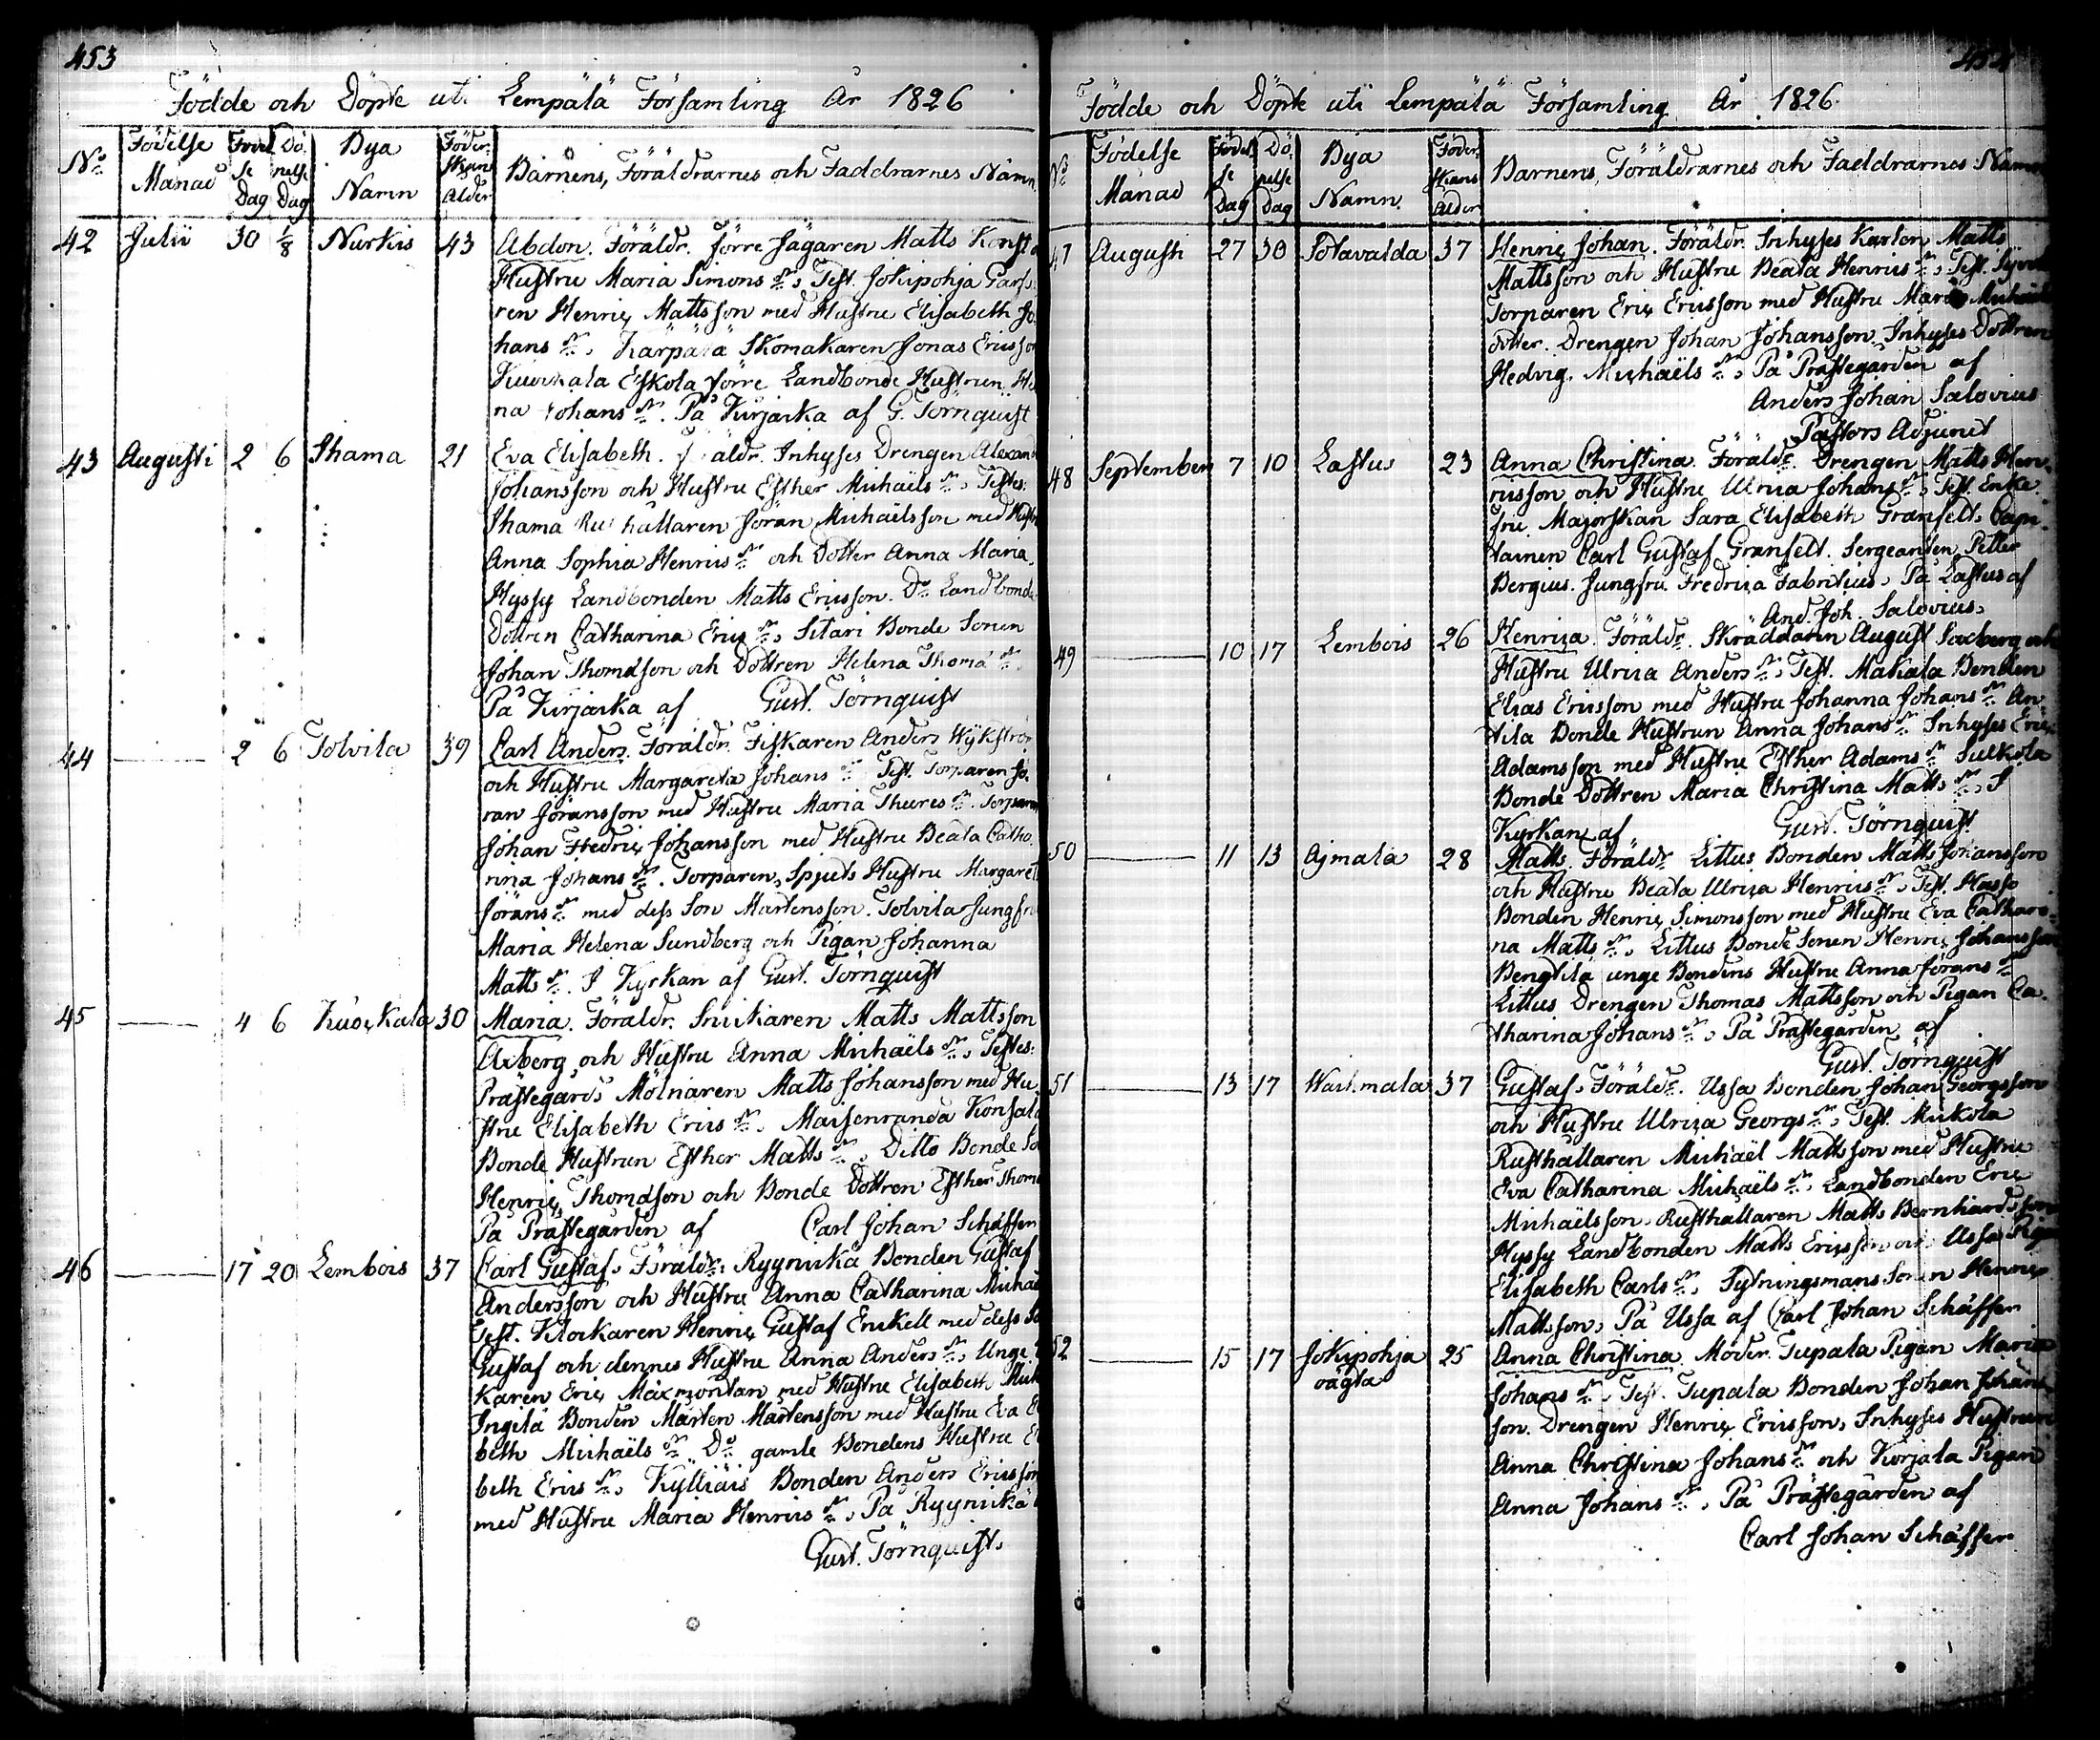 453
Födde och Döpte uti Lempälä Församling År 1826
No Födelse Månad Födelse Dag Döpelse Dag Bya Namn Föderskans Ålder Barnens, Föräldrarnes och Faddrarnes Namn
42 Julii 30 1/8 Nurkis 43 Abdon. Föräldr. förre Jägaren Matts
Hustru Maria Simons dr, Test. Jokipohja
ren Henric Mattsson med Hustru Elisabeth Jo
hans dr, Kärpälä Skomakaren Jonas Ericsson
Kuockala Eskola förre Landbonde Hustrun He
na Johans dr. På Kirjaika af G. Törnquist
43 Augusti 2 6 Ihama 21 Eva Elisabeth. Föräldr. Inhyses Drengen Alexand
Johansson och Hustru Esther Michaëls dr, Testes:
Ihama Rusthållaren Jöran Michaëlsson med Hustr
Anna Sophia Henrics dr och Dotter Anna Maria
Hyssy Landbonden Matts Ericsson. Do Landbonde
Dottren Catharina Erics dr, Sitari Bonde Sonen
Johan Thomasson och Dottren Helena Thomæ dr
På Kirjaika af Gust. Törnquist
44 — 2 6 Tolvila 39 Carl Anders. Föräldr. Fiskaren Anders Wykström
och Hustru Margareta Johans dr Test. Torparen Jö
ran Jöransson med Hustru Maria Thures dr. Torparen
Johan Fredric Johansson med Hustru Beata Catha
rina Johans dr. Torparen Spjuts Hustru Margaret
Jörans dr med dess Son Mårtensson. Tolvila Jungfru
Maria Helena Sundberg och Pigan Johanna
Matts dr. I Kyrkan af Gust. Törnquist
45 — 4 6 Kuockala 30 Maria. Föräldr. Snickaren Matts Mattsson
Axberg och Hustru Anna Michaëls dr, Testes:
Prästegårds Mölnaren Matts Johansson med Hu
stru Elisabeth Erics dr, Maisenranda
Bonde Hustrun Esther Matts dr, Ditto Bonde So
Henric Thomasson och Bonde Dottren Esther Thom
På Prästegården af Carl Johan Schäffer
46 — 17 20 Lembois 37 Carl Gustaf. Föräldr. Ryynikä Bonden Gustaf
Andersson och Hustru Anna Catharina Michaë
Test. Klockaren Henric Gustaf Enckell med dess So
Gustaf och dennes Hustru Anna Anders dr, Unge
karen Eric Maxmontan med Hustru Elisabeth Mich
Ingilä Bonden Mårten Mårtensson med Hustru Eva
beth Michaëls dr Do gamle Bondens Hustru
beth Erics dr, Kylliäis Bonden Anders Ericsson
med Hustru Maria Henrics dr, På Ryynikä
Gust. Törnquist
454
Födde och Döpte uti Lempälä Församling År 1826
No Födelse Månad Födelse Dag Döpelse Dag Bya Namn Föderskans Ålder Barnens, Föräldrarnes och Faddrarnes Namn
47 Augusti 27 30 Sotavalda 37 Henric Johan. Föräldr. Inhyses Karlen Matts
Mattsson och Hustru Beata Henrics dr, Test.
Torparen Eric Ericsson med Hustru Maria Michaëls
dotter. Drengen Johan Johansson Inhyses Dottren
Hedvig Michaëls dr, På Prästegården af
Anders Johan Salovius
Pastors Adjunct
48 September 7 10 Lastus 23 Anna Christina. Föräldr. Drengen Matts Hen
ricsson och Hustru Ulrica Johans dr, Test. Enke
fru Majorskan Sara Elisabeth Granfelt. Capi
tainen Carl Gustaf Granfelt. Sergeanten Petter
Bergius. Jungfru Fredrica Fabritius. På Lastus af
And. Joh. Salovius
49 — 10 17 Lembois 26 Henrica. Föräldr. Skräddaren August och
Hustru Ulrica Anders dr, Test. Makala Bonden
Elias Ericsson med Hustru Johanna Johans dr An
tila Bonde Hustrun Anna Johans dr Inhyses Eric
Adamsson med Hustru Esther Adams dr Sulkola
Bonde Dottren Maria Christina Matts dr, I
Kyrkan af Gust. Törnquist
50 — 11 13 Ajmala 28 Matts. Föräldr. Littus Bonden Matts Johansson
och Hustru Beata Ulrica Henrics dr, Test. Hasso
Bonden Henric Simonsson med Hustru Eva Cathari
na Matts dr, Littus Bonde Sonen Henric Johansson
Bengtilä unge Bondens Hustru Anna Jörans dr
Littus Drengen Thomas Mattsson och Pigan Ca
tharina Johans dr, På Prästegården af
Gust. Törnquist
51 — 13 17 Wacksmala 37 Gustaf. Föräldr. Ussa Bonden Johan Georgsson
och Hustru Ulrica Georgs dr, Test. Mickola
Rusthållaren Michaël Mattsson med Hustru
Eva Catharina Michaëls dr, Landbonden Eric
Michaëlsson, Rusthållaren Matts Bernhardsson
Hyssy Landbonden Matts Ericsson och Ussa Pigan
Elisabeth Carls dr, Fytningsmans Sonen Henric
Mattsson, På Ussa af Carl Johan Schäffer
52 — 15 17 Jokipohja 25 Anna Christina Moder. Tupala Pigan Maria
oägta Johans dr, Test. Tupala Bonden Johan Johans
son. Drengen Henric Ericsson, Inhyses Hustrun
Anna Christina Johans dr och Korjala Pigan
Anna Johans dr, På Prästegården af
Carl Johan Schäffer